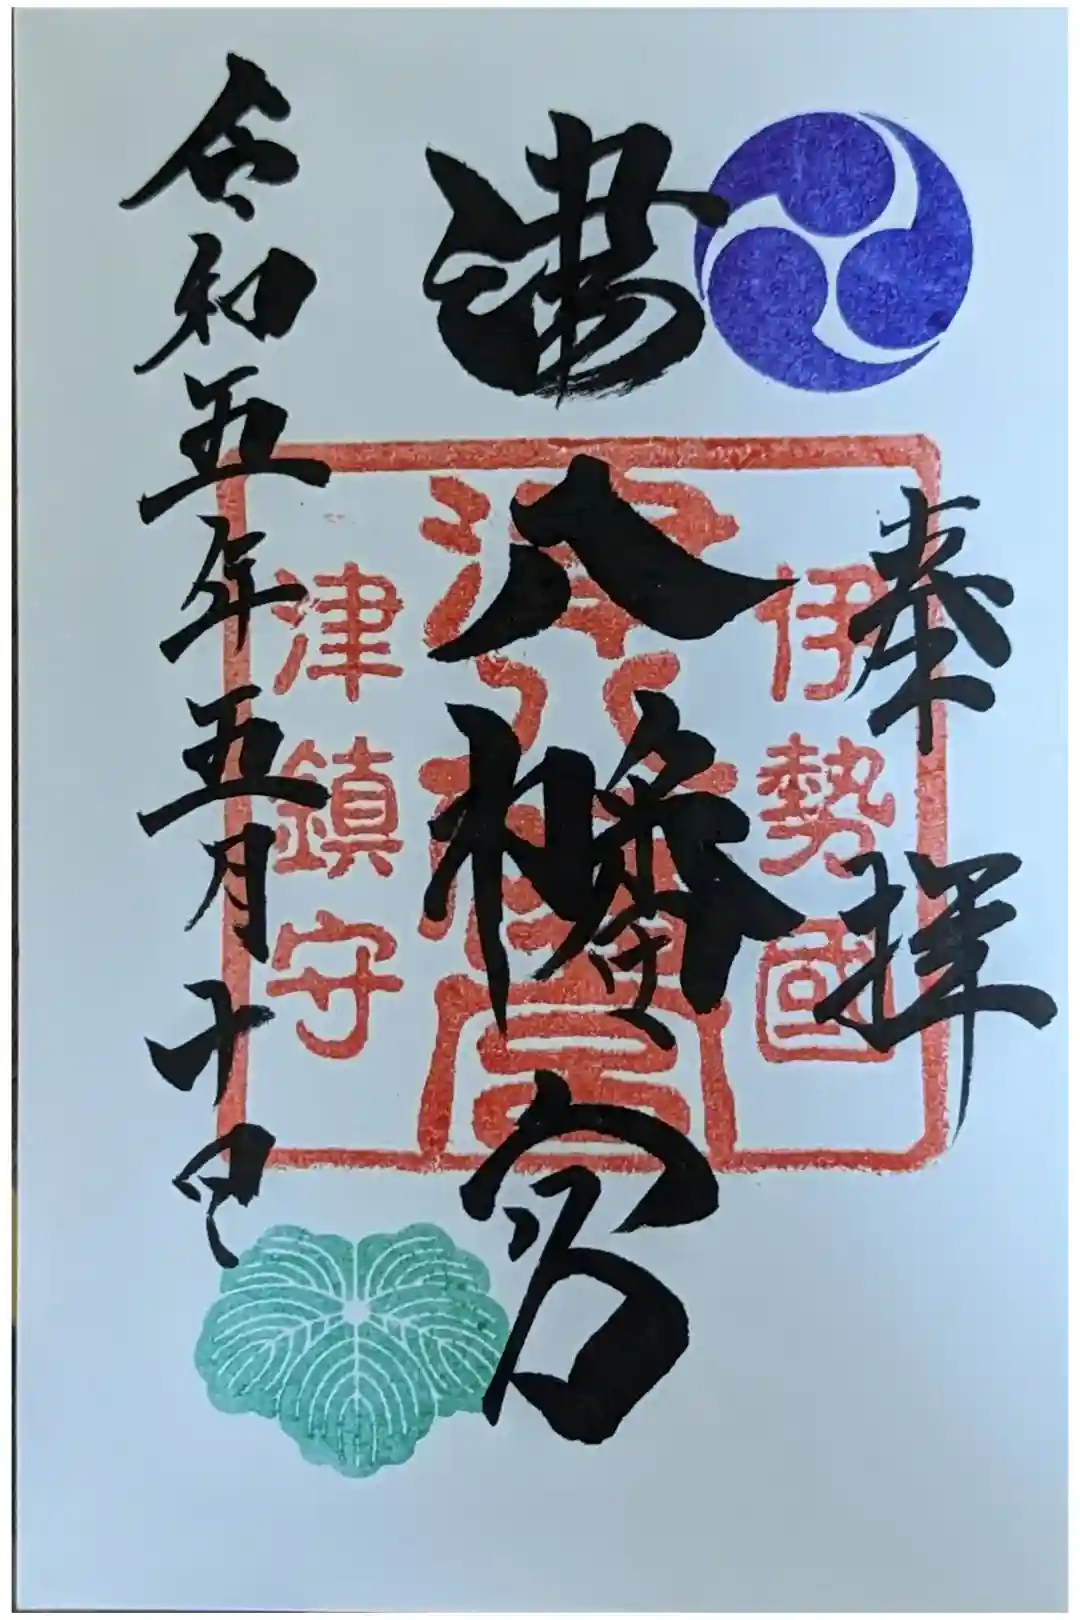 奉拝
伊勢國
津八幡宮
津八幡宮
津鎮守
令和五年五月十日